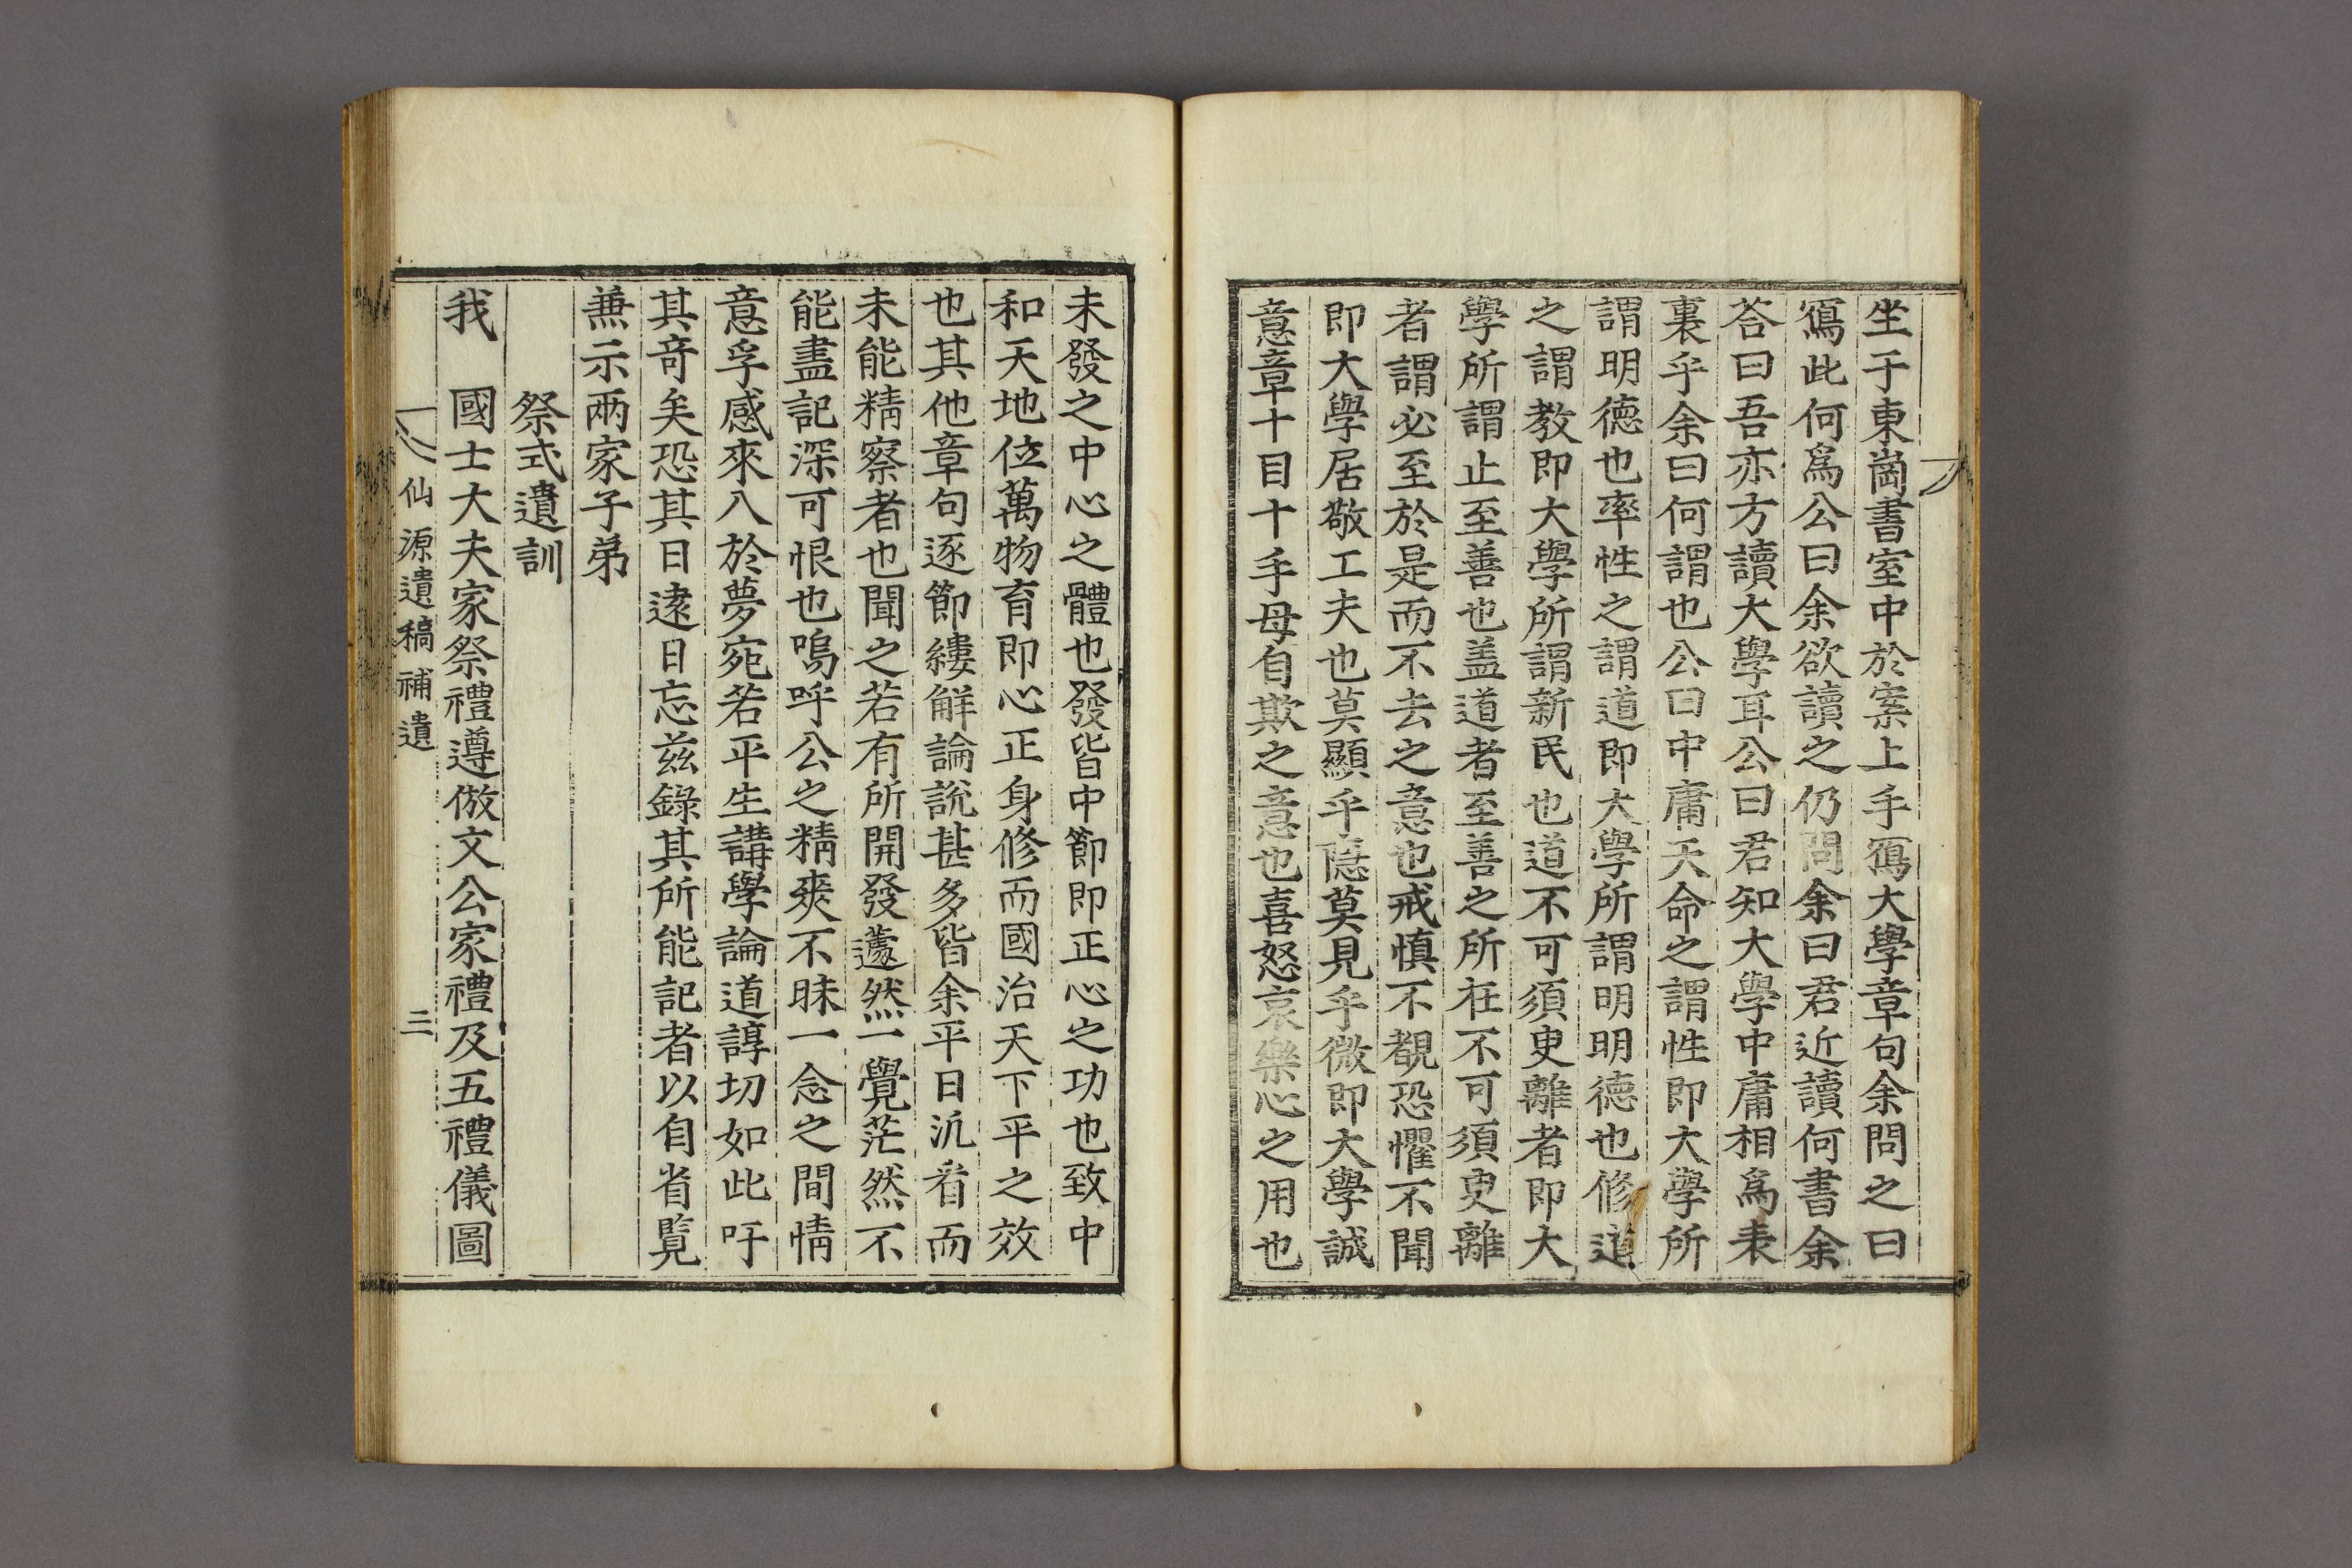 坐于東崗書室中於案上手寫大學章句余問之曰
寫此何爲公曰余欲讀之仍問余曰君近讀何書余
答曰吾亦方讀大學耳公曰君知大學中庸相爲表
裏乎余曰何謂也公曰中庸天命之謂性即大學所
謂明德也率性之謂道即大學所謂明明德也修道
之謂教即大學所謂新民也道不可須臾離者即大
學所謂止至善也盖道者至善之所在不可須臾離
者謂必至於是而不去之意也戒慎不覩恐懼不聞
即大學居敬工夫也莫顯乎隱莫見乎微即大學誠
意章十目十手母自欺之意也喜怒哀樂心之用也
未發之中心之體也發皆中節即正心之功也致中
和天地位萬物育即心正身修而國治天下平之效
也其他章句逐節縷觧論說甚多皆余平日汎看而
未能精察者也聞之若有所開發蘧然一覺茫然不
能盡記深可恨也嗚呼公之精爽不昧一念之間情
意孚感來入於夢宛若平生講學論道諄切如此吁
其奇矣恐其日逺日忘兹錄其所能記者以自省覧
兼示兩家子弟
祭式遺訓
我 國士大夫家祭禮遵倣文公家禮及五禮儀圖
仙源遺稿補遺 三